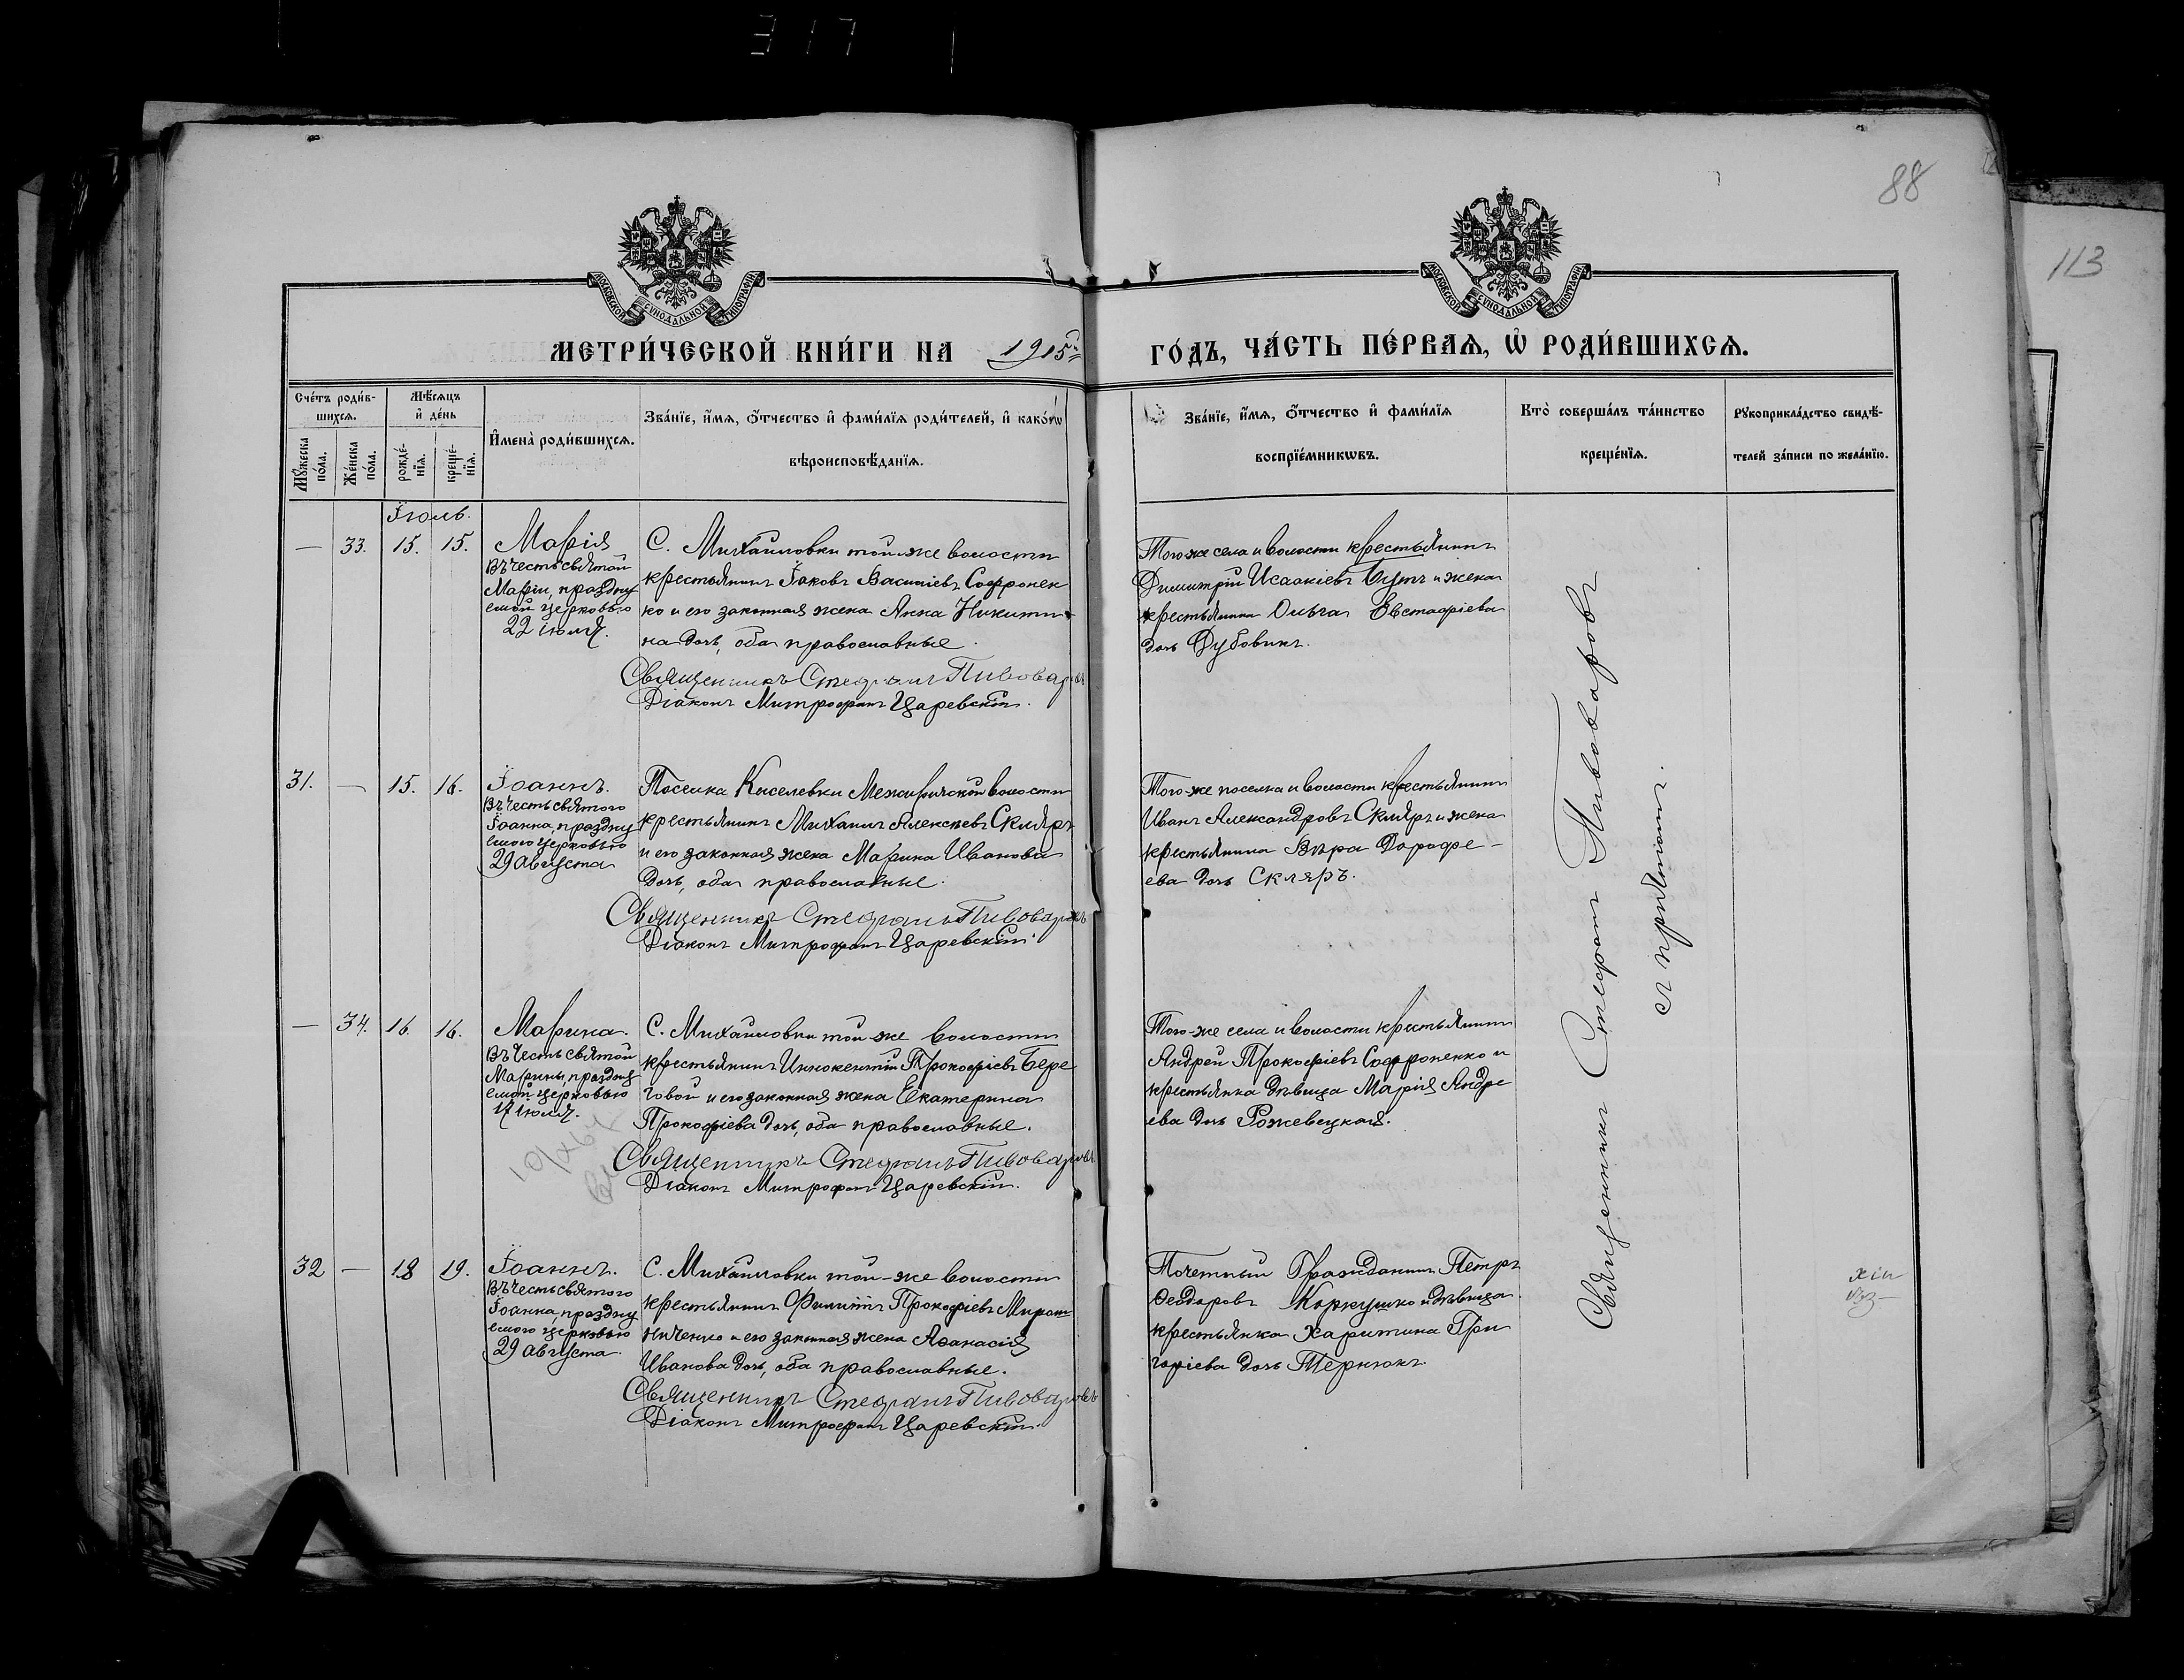 317
88
113
МОСКОВСКОЙ СУНОДАЛЬНОЙ ТИПОГРАФІИ
МОСКОВСКОЙ СУНОДАЛЬНОЙ ТИПОГРАФІИ
МЕТРИ́ЧЕСКОЙ КНИ́ГИ НА 1915й
ГО́ДЪ, ЧА́СТЬ ПЕ́РВАѦ, Ѡ҆ РОДИ́ВШИХСѦ.
Сче́тъ роди́в-
шихсѧ.
Мꙋ́жеска по́ла.
Же́нска по́ла.
Мѣ́сѧцъ и҆ де́нь
рожде́-нїѧ.
креще́-нїѧ.
И҆мена̀ роди́вшихсѧ.
Зва́нїе, и҆́мѧ, ѻ҆́тчество и҆ фами́лїѧ роди́телей, и҆ како́гѡ
вѣроисповѣ́данїѧ.
Зва́нїе, и҆́мѧ, ѻ҆́тчество и҆ фами́лїѧ
воспрїе́мникѡвъ.
Кто̀ соверша́лъ та́инство
креще́нїѧ.
Рꙋкоприкла́дство свидѣ́-
телей за́писи по жела́нїю.
Іюль.
— 33. 15. 15.
Марія
Въ честь святой
Маріи, праздну
емой церковью
22 июля.
С. Михайловки той-же волости
крестьянинъ Іаковъ Василіевъ Софронен
ко и его законная жена Анна Никити
на дочь, оба православные.
Священникъ Стефанъ Пивоваровъ
Діаконъ Митрофанъ Царевскій.
Того же села и волости крестьянинъ
Димитрій Исаакіевъ Бутъ и жена
крестьянина Ольга Евстафіева
дочь Дубовикъ.
31. — 15. 16.
Іоаннъ.
Въ честь святого
Іоанна, праздну
емого церковью
29 Августа
Поселка Киселевки Межиричской волости
крестьянинъ Михаилъ Алексѣевъ Скляръ
и его законная жена Марина Иванова
дочь, оба православные.
Священникъ Стефанъ Пивоваровъ
Діаконъ Митрофанъ Царевскій.
Того-же поселка и волости крестьянинъ
Иванъ Александровъ Скляръ и жена
крестьянина Вѣра Дорофе-
ева дочь Скляръ.
— 34. 16. 16.
Марина.
Въ честь святой
Марины, праздну
емой церковью
17 июля.
С. Михайловки той-же волости
крестьянинъ Иннокентій Прокофіевъ Бере
говой и его законная жена Екатерина
Прокофіева дочь, оба православные.
Священникъ Стефанъ Пивоваровъ
Діаконъ Митрофанъ Царевскій.
Того-же села и волости крестьянинъ
Андрей Прокофіевъ Софроненко и
крестьянка дѣвица Марія Андре
ева дочь Рожевецкая.
32 — 18 19.
Іоаннъ.
Въ честь святого
Іоанна, праздну
емого церковью
29 августа.
С. Михайловки той-же волости
крестьянинъ Филиппъ Прокофіевъ Мирош
ниченко и его законная жена Аѳанасія
Иванова дочь, оба православные.
Священникъ Стефанъ Пивоваровъ
Діаконъ Митрофанъ Царевскій.
Почетный Гражданинъ Петръ
Ѳеодоровъ Коркушко и дѣвица
крестьянка Харитина Гри
горіева дочь Тернюкъ.
Священникъ Стефанъ Пивоваровъ
съ причтомъ.